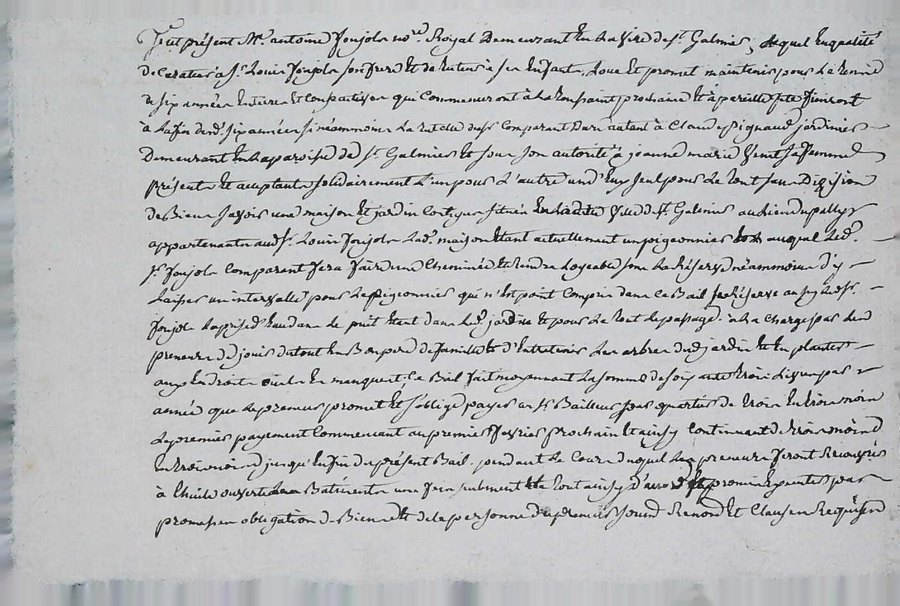 fut présent Mr. antoine Joujols nore. Royal Demeurant En la ville de st. Galmier, lequel En qualité
de Curateur à Sr. Louis Joujols son frere Et de tuteur à ses Enfants, Loue Et promet maintenir pour Le terme
de six années Entieres Et consecutives qui Commenceront à La toussaint prochaine Et à pareille fete finiront
à La fin desd. six années néammoins La du Comparant à Claude pignaud jardinier
Demeurant En La paroisse de st. Galmier Et sous son autorité à jeanne marie sa femme
présents Et acceptants solidairement L'un pour L'autre un d'Eux seul pour Le tout sans Division
de Biens savoir une maison Et jardin Contigus situés En Ladite ville de st. Galmier au lieu du
appartenants aud. Sr. Louis Joujols Lad. maison Etant actuellement un pigeonnier auquel Led.
Sr. Joujols Comparant fera faire une Cheminée Et rendra Logeable sous La Réserve néammoins d'y
Laisser un intervalle pour Le pigeonnier qui n'Est point Compris dans ce Bail se Réserve aussy Led. Sr.
Joujols La prise d'Eau dans Le puit Etant dans Led. jardin Et pour Le tout Le passage. à La Charge par Les d.
preneurs de jouir du tout En Bon pere de famille Et d'Entretenir Les arbres dud. jardin Et En planter
aux Endroits où il En manquera. Ce Bail fait moyennant La somme de soixante trois Livres par
année que Le preneur promet Et s'oblige payer au Sr. Bailleur par quartier de trois En trois mois
Le premier payement Commencant au premier fevrier prochain Et ainsy Continuant de trois mois
En trois mois jusqu'En fin du présent Bail. pendant Le Cours duquel Les preneurs feront Recouvrir
à thuile ouverte Les Batiments une fois seulement Et tout ainsy par
promesses obligation de Biens Et de La personne du preneur soumd. Renond. Et Clauses Requises